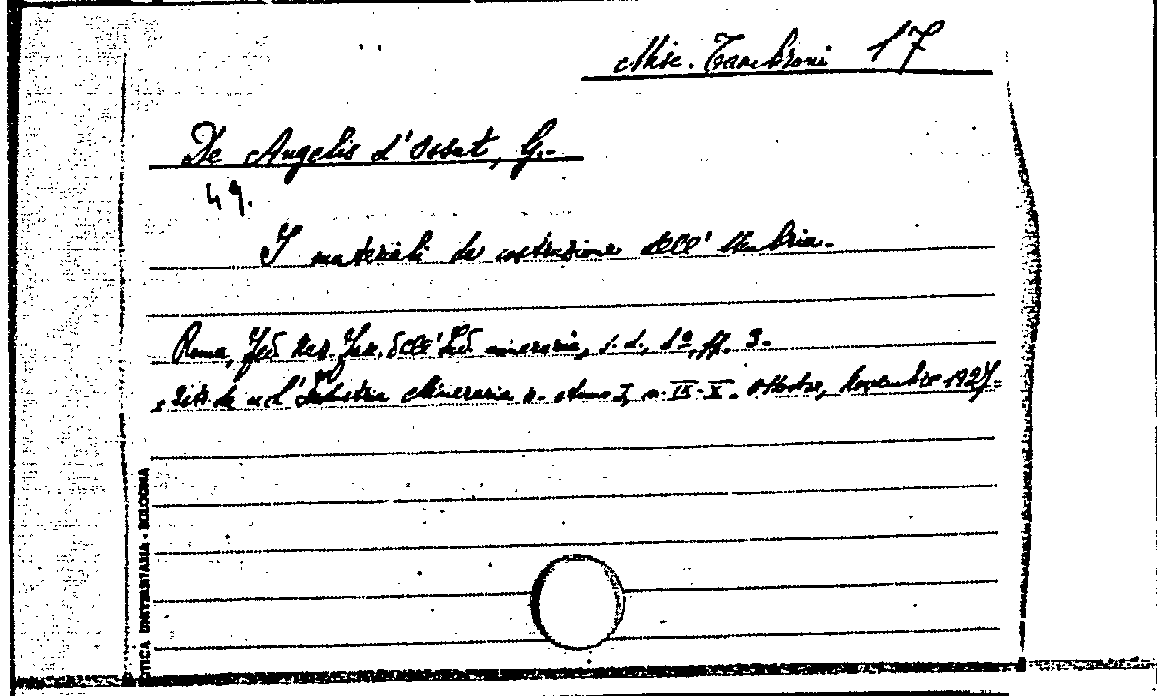 Misc. Tambroni 17
De Angelis d'Ossat, G.-
49.
I materiali da costruzione dell'Umbria.-
Roma, Fed. Naz. Fasc. dell'Ind. mineraria, s.d., 8°, pp. 3.-
Estr. da "L'Industria Mineraria". Anno I, n. IX-X. Ottobre, Novembre 1927.-
TICA UNIVERSITARIA - BOLOGNA